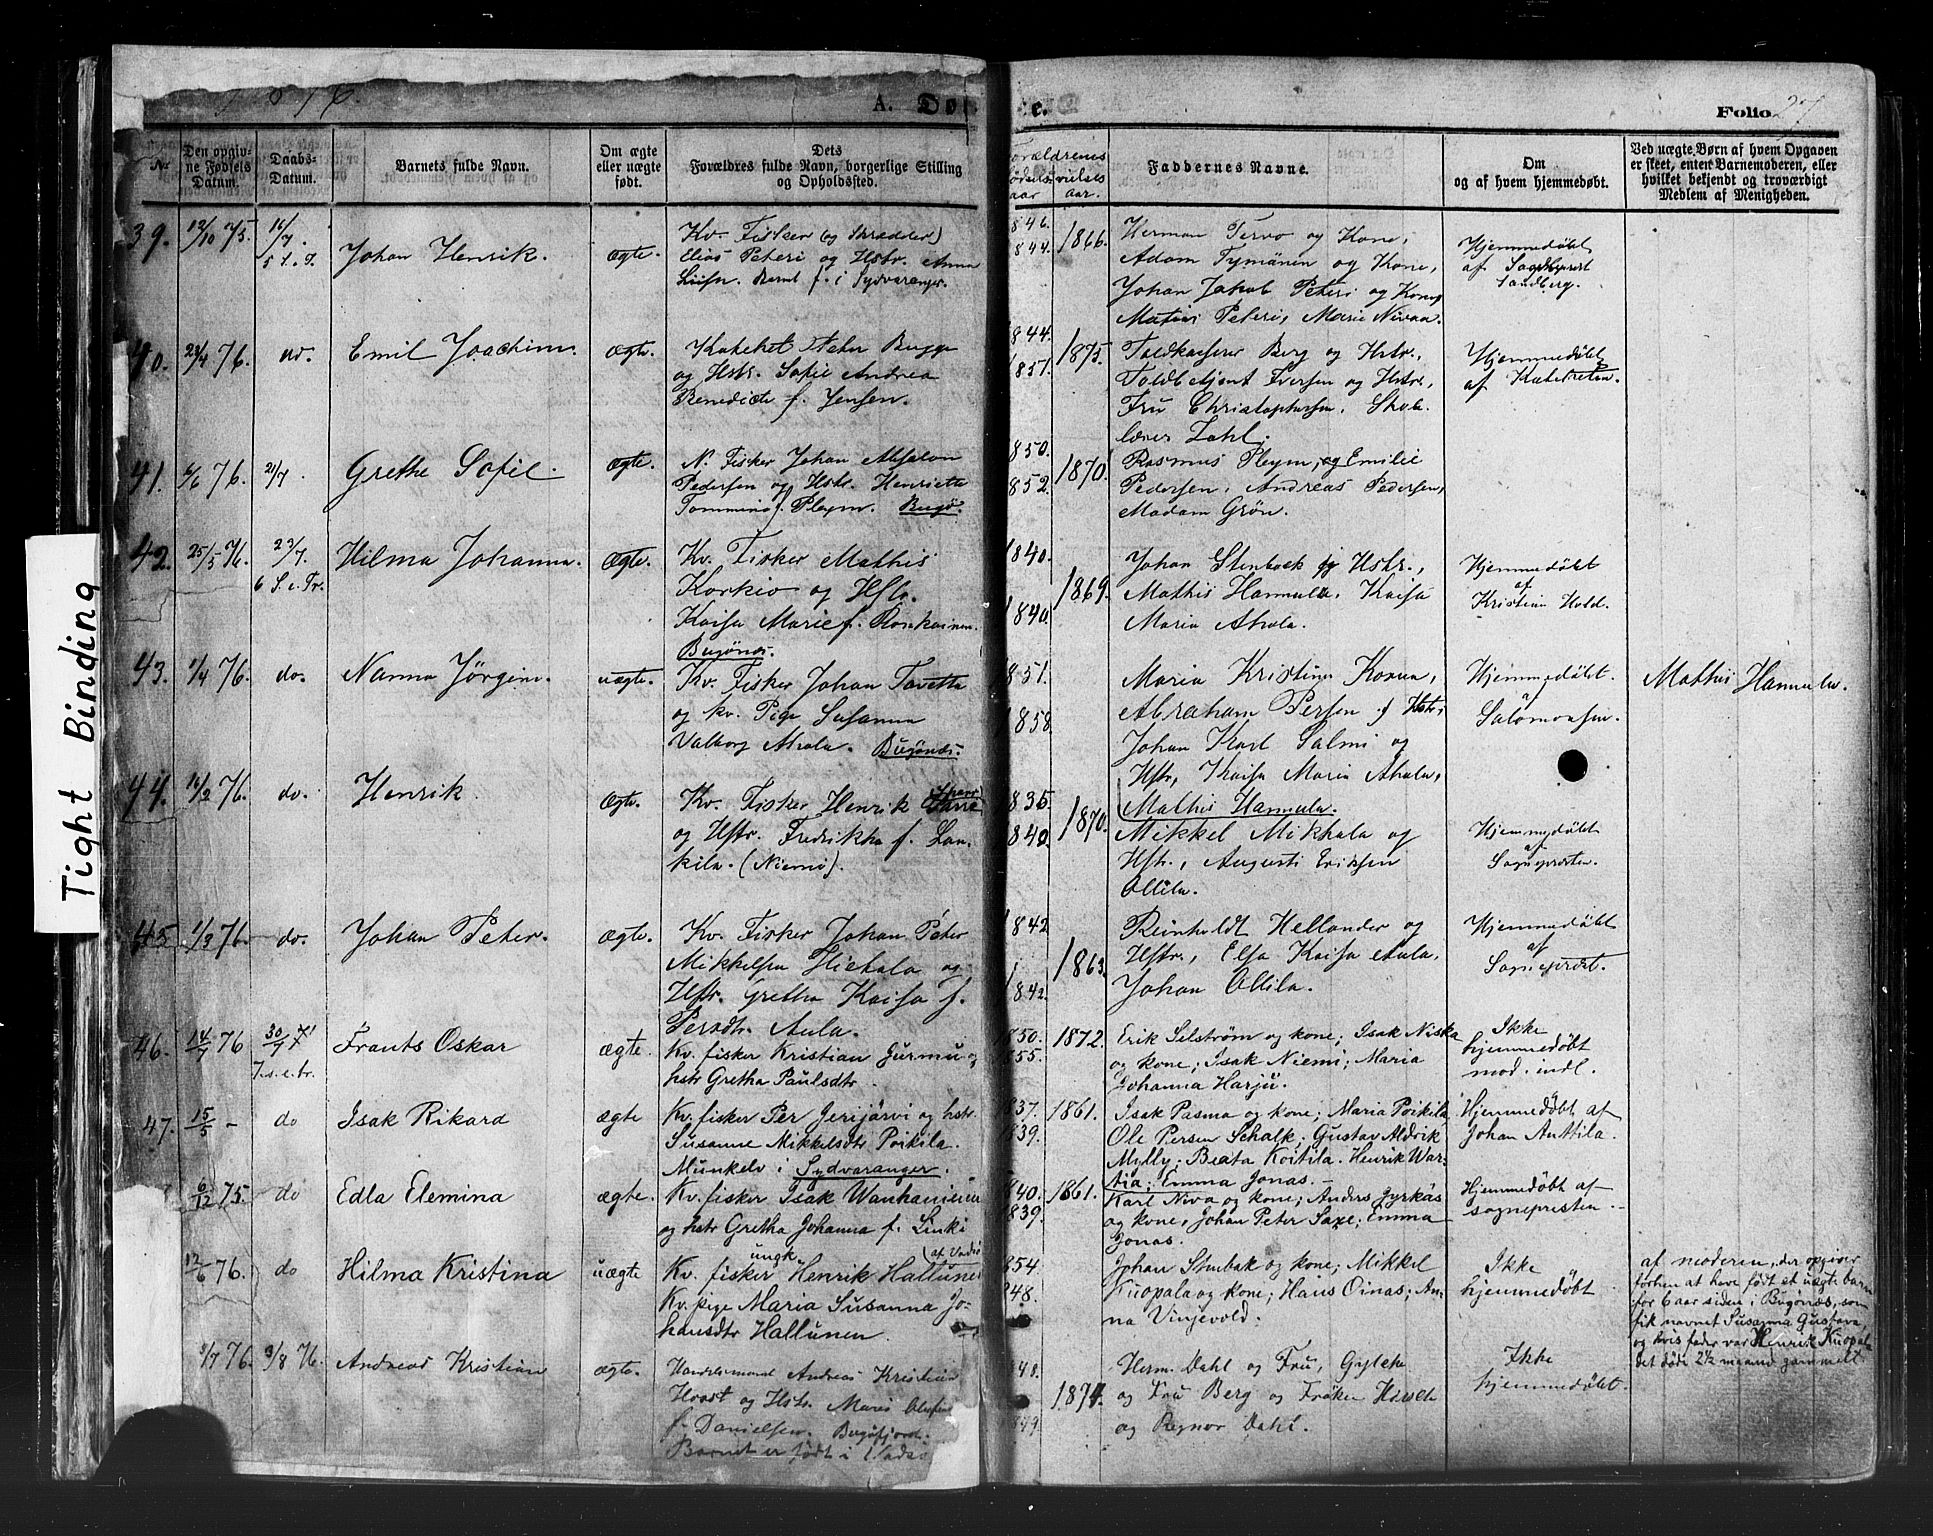 1876.
A. Døb
e.
Folio 27
Nr.
Den opgiv-
ne Fødsels
Datum.
Daabs-
Datum.
Barnets fulde Navn.
Om ægte
eller uægte
født.
Dets
Forældres fulde Navn, borgerlige Stilling
og Opholdsted.
Faddernes Navne.
Om
og af hvem hjemmedøbt.
Ved uægte Børn af hvem Opgaven
er skeet, enten Barnemoderen, eller
hvilket bekjendt og troværdigt
Medlem af Menigheden.
Tight Binding
39. 12/10 75. 16/7. Johan Henrik. ægte.
5 S. e. T.
Kv. Fisker (og Skrædder)
Elias Peteri og Hstr. Anna
f. i Sydvaranger.
846.
844.
1866.
Herman Tervo og Kone,
Adam Tymänen og Kone,
Johan Jakob Peteri og Kone,
Matias Peteri, Marie Nivaa.
Hjemmedøbt
af
Sandberg.
40. 23/4 76. do. Emil Joachim. ægte.
Kateket Peter Bugge
og Hstr. Sofie Andrea
Benedicte f. Jensen.
844.
1857.
1875.
Toldkasserer Berg og Hstr.,
Toldbetjent Iversen og Hstr.,
Fru Christophersen, Skole-
lærer Zahl.
Hjemmedøbt
af Kateketen.
41. 6/6 76. 21/7. Grethe Sofie. ægte.
N. Fisker Johan Absalon
Pedersen og Hstr. Henriette
f. Pleym. Bugø.
850.
852.
1870.
Rasmus Pleym, og Emilie
Pedersen, Andreas Pedersen,
Madam Grøn.
42. 25/5 76. 23/7. Hilma Johanna. ægte.
6 S. e. Tr.
Kv. Fisker Mathis
Korkio og Hstr.
Kaisa Marie f.
Bugønæs.
1840.
1840.
1869.
Johan Stenbæk og Hstr.,
Mathis Hannula, Kaisa
Maria Ahola.
Hjemmedøbt
af
Kristian Hold.
43. 1/4 76. do. Nanna Jörgine. uægte.
Kv. Fisker Johan Tavetta
og kv. Pige Susanna
Valborg Ahola. Bugønæs.
1851.
1858.
Maria Kristina Korva,
Abraham Persen og Hstr.,
Johan Karl Salmi og
Hstr., Kaisa Maria Ahola,
Mathis Hannula.
Hjemmedøbt
a
Salomonsen.
Mathis Hannula.
44. 16/2 76. do. Henrik ægte.
Kv. Fisker Henrik
og Hstr. Fredrikka f. Lan-
kila. (Niemö).
1835
1840.
1870.
Mikkel Mikkala og
Hstr., Augusti Eriksen
Ollila.
Hjemmedøbt
af
Sognepresten.
45. 1/3 76. do. Johan Peter. ægte.
Kv. Fisker Johan Peter
Mikkelsen Hietala og
Hstr. Gretha Kaisa f.
Persdtr. Aula.
1842
1842.
1863.
Reinholdt Hellander og
Hstr., Elsa Kaisa Aula,
Johan Ollila.
Hjemmedøbt
af
Sogneprest.
46. 14/7 76 30/7 Frants Oskar ægte.
7. s. e. tr.
Kv. fisker Kristian Gurmu og
hstr Gretha Paulsdtr.
850.
855.
1872.
Erik Selström og kone; Isak Niska
og kone; Isak Niemi; Maria
Johanna Harju.
Ikke
hjemmedøbt
mod. indl.
47. 15/5 - do Isak Rikard ægte
Kv. fisker Per Jerijärvi og hstr.
Susanne Mikkelsdtr Poikila.
Munkelv i Sydvaranger.
837.
839.
1861.
Isak Pasma og kone; Maria Poikila,
Ole Persen Schalk; Gustav Aldrik
Mylly; Beata Koitila. Henrik War-
tia; Emma Jonas.
Hjemmedøbt af
Johan Anttila.
6/12 75. do Edla Elemina ægte.
Kv. fisker Isak Wanhaniemi
og hstr Gretha Johanna f. Linki
840.
839.
1861.
Karl Niva og kone; Anders Jyrkäs
og kone; Johan Peter Saxe; Emma
Jonas.
Hjemmedøbt af
sognepresten.
12/6 76. do Hilma Kristina uægte
ungk. (af Vadsø
Kv. fisker Henrik Hallunen
Kv. pige Maria Susanna Jo-
hansdtr Hallunen.
854.
848.
Johan Stubak og kone; Mikkel
Kuopala og kone; Hans Oinas; An-
na Vinjevold.
Ikke
hjemmedøbt
af moderen, der opgiver
forhen at have født et uægte barn
for 6 aar siden i Bugønæs, som
fik navnet Susanna Gustava,
og hvis fader var Henrik Kuopala
det døde 2½ maaned gammelt
3/7 76. 9/8 76. Andreas Kristian ægte.
Handelsmand Andreas Kristian
Horst og Hstr. Maria Olufine
f. Danielsen. Bugøfjord.
Barnet er født i Vadsø
848.
849.
1874.
Herm. Dahl og Fru,
og Fru Berg og Frøken Hirsch
og Regnor Dahl.
Ikke
hjemmedøbt.